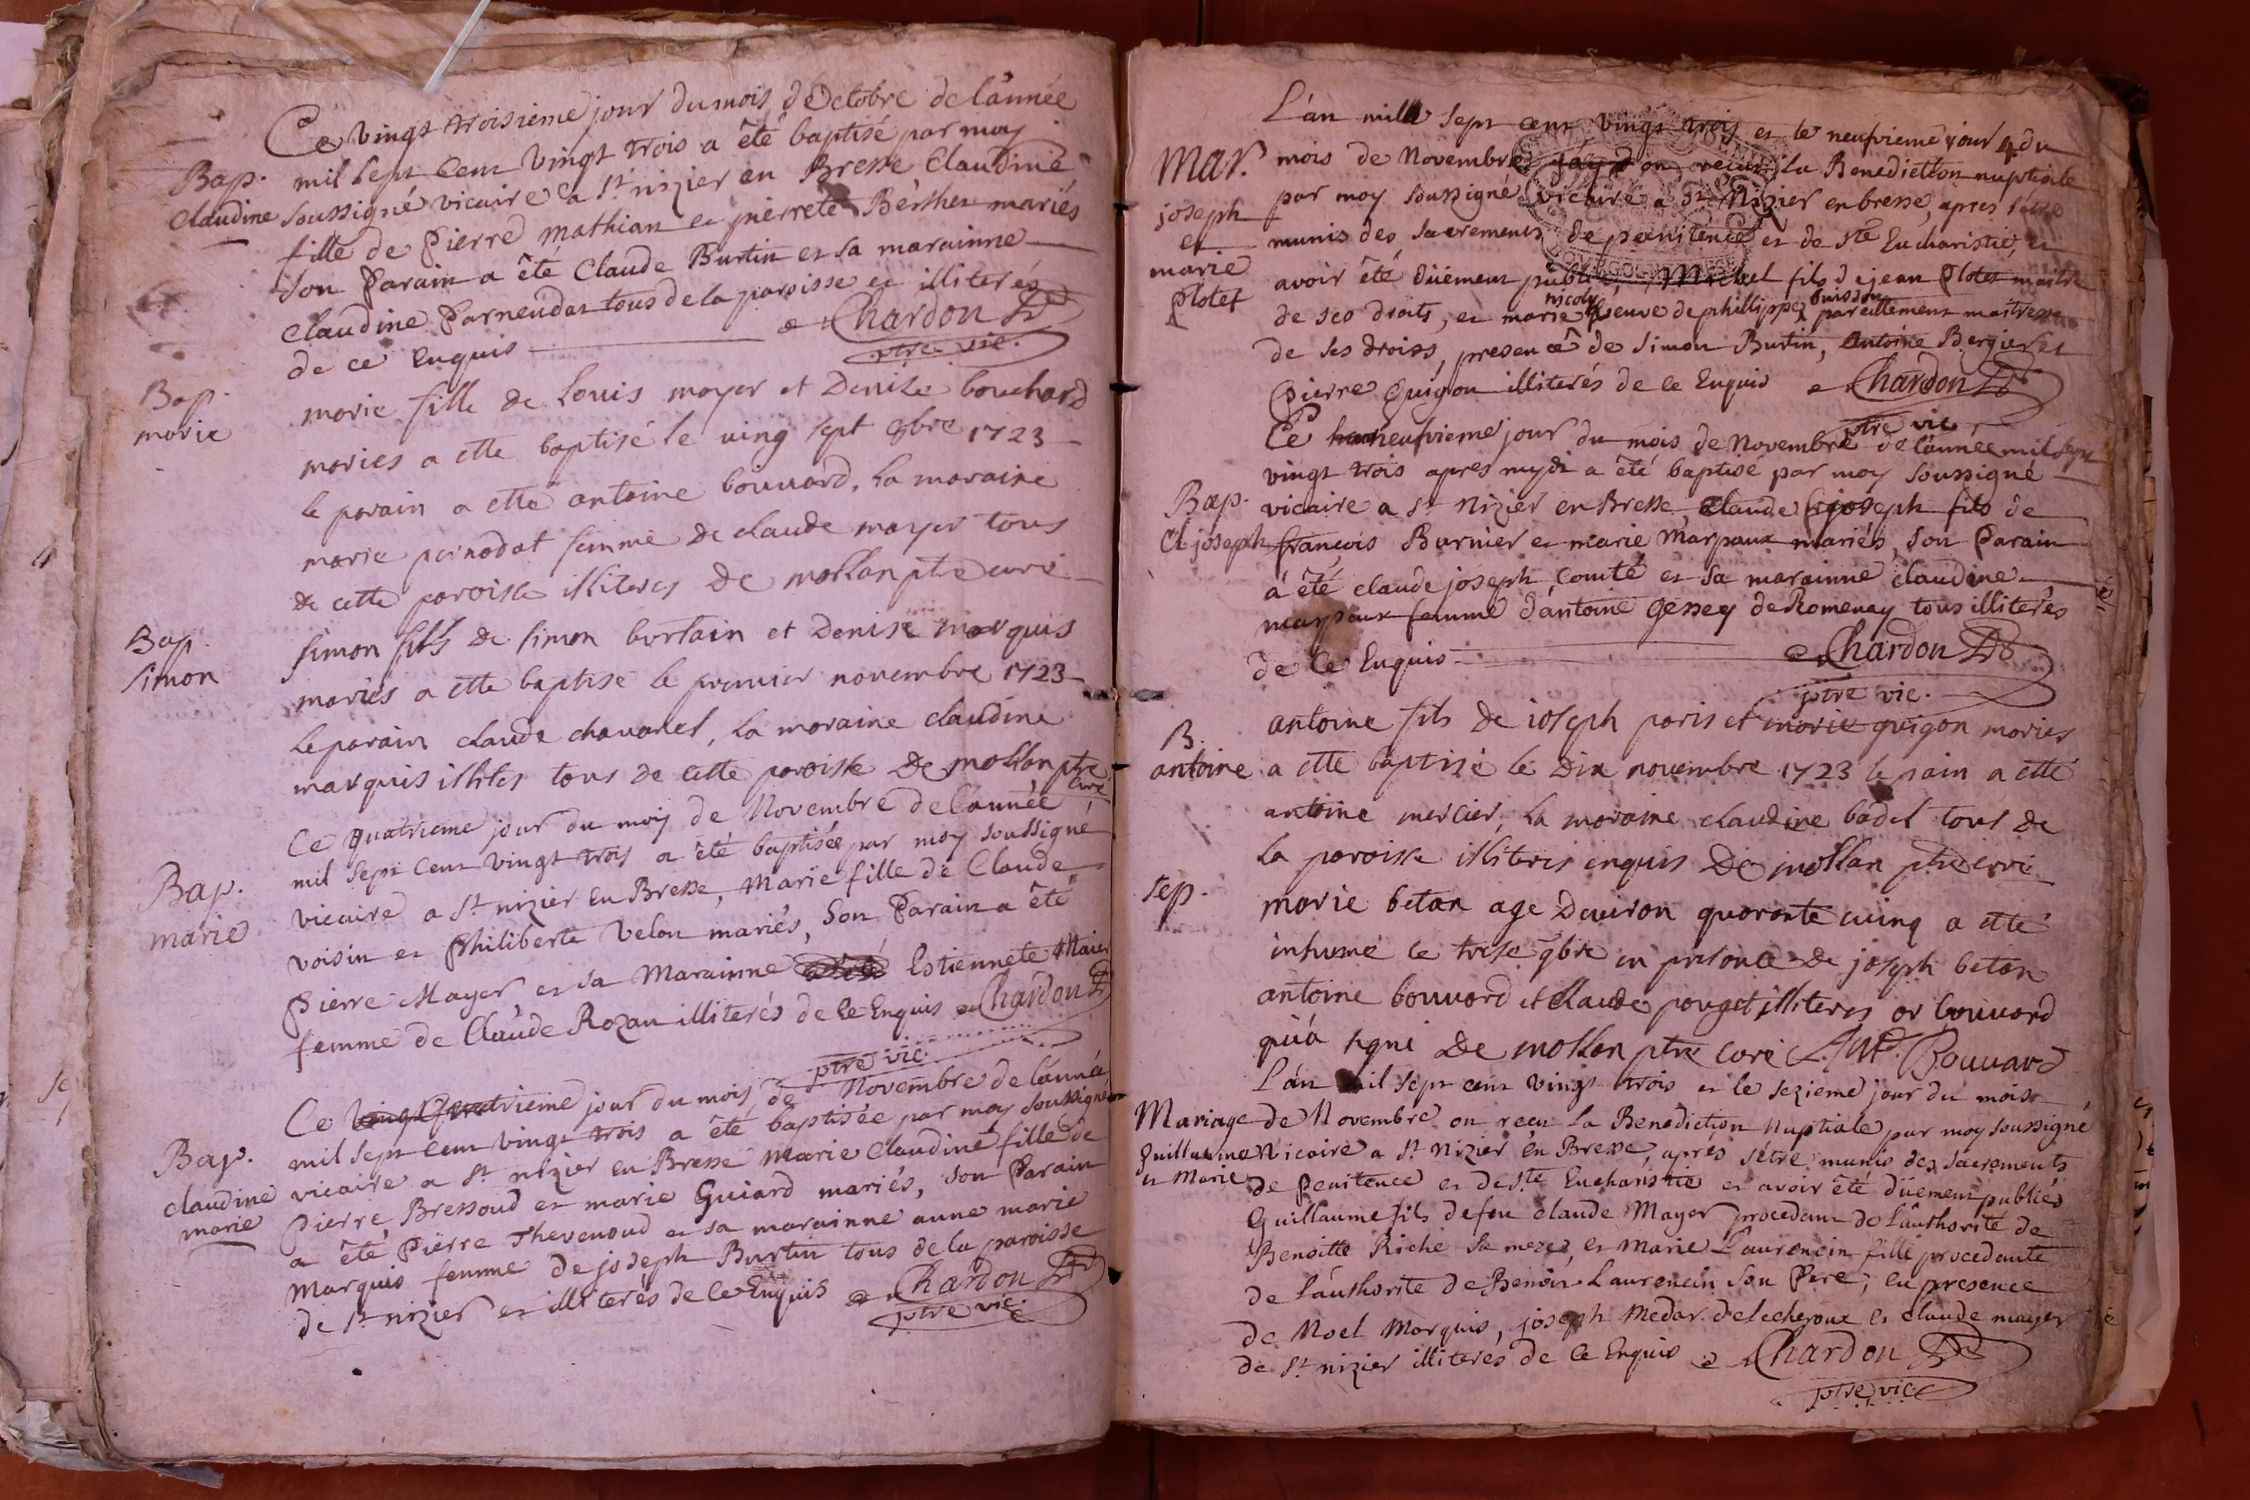 Ce vingt troisieme jour du mois d'Octobre de l'année
mil sept cent vingt trois a été baptisé par moy
Bap. Claudine
soussigné vicaire a St nizier en Bresse Claudine
fille de Pierre Mathian et pierrete Berthet mariés
son Parain a été Claude Burtin et sa marainne
Claudine Parneudat tous de la paroisse et illiterés
de ce Enquis Chardon
ptre vic.
Bap. marie
marie fille de Louis moyer et Denise bouchard
mariés a etté baptisé le ving sept 8bre 1723
le parain a etté antoine bouuard, la maraine
marie pernodat femme de claude mayer tous
de cette paroisse illiteres De mollan ptre curé
Bap. simon
simon fils de simon burtain et Denise marquis
mariés a etté baptisé le premier novembre 1723
le parain claude chavanel, la maraine claudine
marquis illites tous de cette paroisse De mollan ptre
curé
Ce quatrieme jour du moy de Novembre de l'année
mil sept cent vingt trois a été baptisée par moy soussigné
Bap. marie
vicaire a St nizier en Bresse, Marie fille de Claude
voisin et Philiberte Velon mariés, Son Parain a été
Pierre Mayer, et sa Marainne Estiennete Maier
femme de Claude Rozan illiterés de ce Enquis Chardon
ptre vic.
Ce quatrieme jour du mois de Novembre de l'année
mil sept cent vingt trois a été baptisée par moy soussigné
Bap. claudine marie
vicaire a St nizier en Bresse Marie Claudine fille de
Pierre Bressoud et marie Guiard mariés, Son Parain
a été Pierre Thevenoud et sa marainne anne marie
Marquis femme de joseph Burtin tous de la paroisse
de St nizier et illiterés de ce Enquis Chardon
ptre vic.
L'an mille sept cent vingt trois et le neufvieme jour du
Mar. joseph et marie Plotet
mois de Novembre on receu la Benediction nuptiale
par moy soussigné vicaire a St Nizier en bresse, apres
munis des sacrements de penitence et de ste Eucharistie, et
avoir été düement publiés, Michel fils de jean Plotet maitre
nicolas buisson
de ses droits, et marie veuve de phillippe pareillement maitresse
de ses droits, presence de simon Burtin, Antoine Bergier et
Pierre Guigon illiterés de ce Enquis Chardon
ptre vic.
Ce neufvieme jour du mois de Novembre de l'année mil sept
vingt trois apres mydi a été baptisé par moy soussigné
Bap. Cl joseph
vicaire a St Nizier en Bresse, Claude joseph fils de
françois Burnier et marie Marpaux mariés, son Parain
a été claude joseph Comté et sa marainne claudine
marpaux femme d'antoine Gessey de Romenay tous illiterés
de ce Enquis Chardon
ptre vic.
B. antoine
antoine fils de ioseph paris et marie guigon mariés
a etté baptizé le Dix novembre 1723 le pain a etté
antoine mercier, la maraine claudine badel tous de
la paroisse illiteris enquis De mollan ptre curé
sep.
marie betan age Denviron quarante cinq a etté
inhumé le trese 9bre en presence de joseph betan
antoine bouuard et claude pouget illiteres or bouuard
qu'a signé De mollan ptre curé Ant. Bouuard
L'an mil sept cent vingt trois et le sezieme jour du mois
Mariage Guillaume et Marie
de Novembre on receu la Benediction Nuptiale par moy soussigné
Vicaire a St Nizier en Bresse, aprés s'étre munis des sacrements
de penitence et de ste Eucharistie et avoir été düement publiés
Guillaume fils de feu claude Mayer procedant de l'authorité de
Benoitte Riche sa mere, et Marie Laurencin fille procedante
de l'authorité de Benoit Laurencin son Pere, en presence
de Noel Marquis, joseph Medar de lecheroux et claude mayer
de St nizier illiteres de ce Enquis Chardon
ptre vic